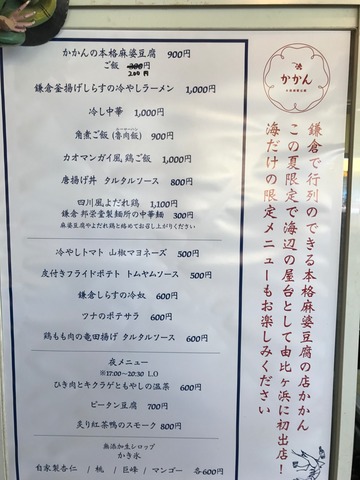 かかんの本格麻婆豆腐 900円
ご飯 300円
200円
鎌倉釜揚げしらすの冷やしラーメン 1,000円
冷し中華 1,000円
角煮ご飯(魯肉飯) 900円
ルーローハン
カオマンガイ風鶏ご飯 1,000円
唐揚げ丼 タルタルソース 800円
四川風よだれ鶏 1,100円
鎌倉 邦栄堂製麺所の中華麺 300円
麻婆豆腐やよだれ鶏と絡めてお召し上がりください
冷やしトマト 山椒マヨネーズ 500円
皮付きフライドポテト トムヤムソース 500円
鎌倉しらすの冷奴 600円
ツナのポテサラ 600円
鶏もも肉の竜田揚げ タルタルソース 600円
夜メニュー
※17:00~20:30 LO
ひき肉とキクラゲともやしの温菜 600円
ピータン豆腐 700円
炙り紅茶鴨のスモーク 800円
無添加生シロップ
かき氷
自家製杏仁 / 桃 / 巨峰 / マンゴー 各600円
かかん
鎌倉で行列のできる本格麻婆豆腐の店かかん
この夏限定で海辺の屋台として由比ヶ浜に初出店!
海だけの限定メニューもお楽しみください